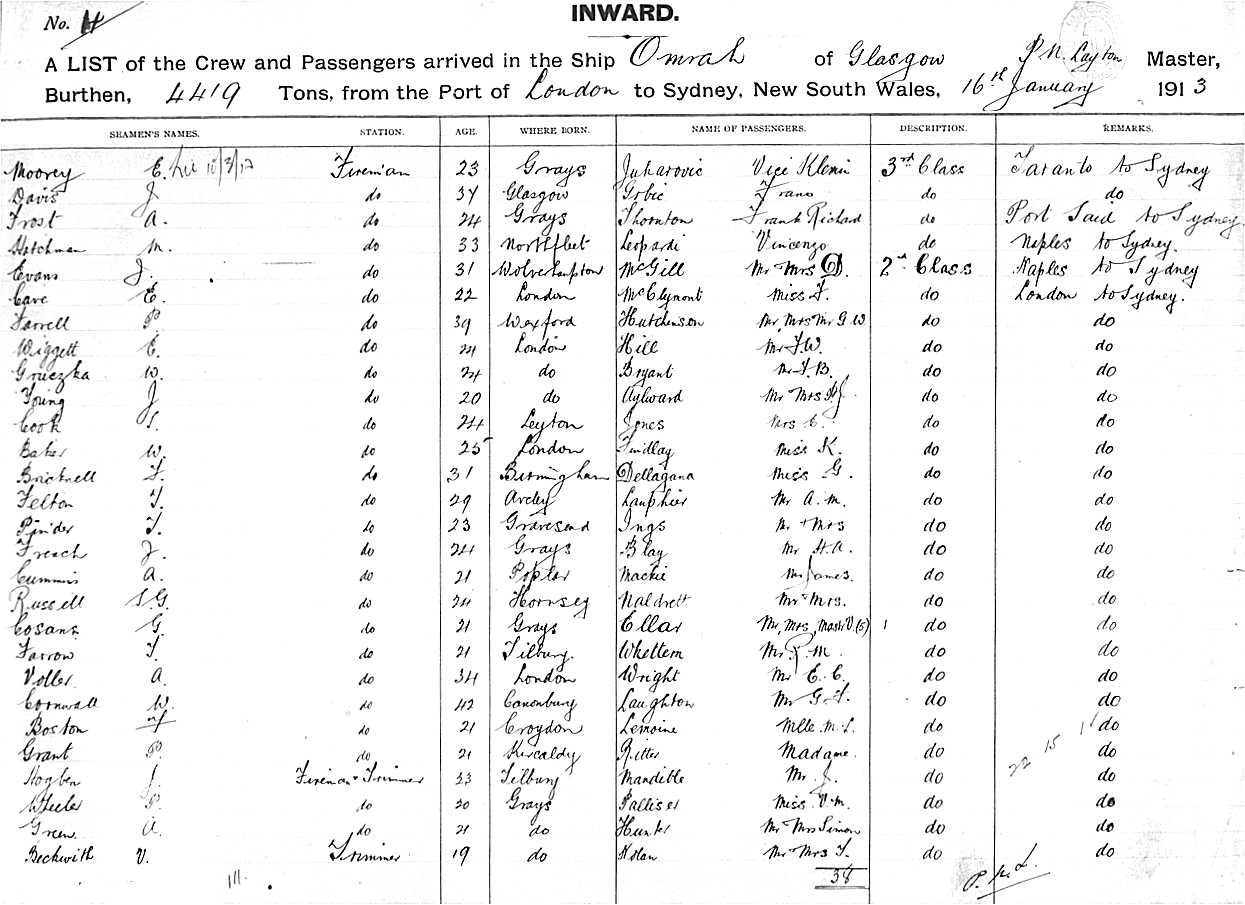 No. 4
INWARD.
A LIST of the Crew and Passengers arrived in the Ship Omrah of Glasgow P N Layton Master,
Burthen, 4419 Tons, from the Port of London to Sydney, New South Wales, 16th January 1913
SEAMEN'S NAMES. STATION. AGE. WHERE BORN. NAME OF PASSENGERS. DESCRIPTION. REMARKS.
Moorey E. Fireman 23 Grays Juharovic Vice Klemin 3rd Class Taranto to Sydney
Davis J. do 37 Glasgow Grbic Frano do do
Frost A. do 24 Grays Thornton Frank Richard do Port Said to Sydney
Hotchman M. do 33 Northfleet Leopardi Vincenzo do Naples to Sydney.
Evans J. do 31 Wolverhampton McGill Mr Mrs D. 2nd Class Naples to Sydney
Cave E. do 22 London McClymont Miss F. do London to Sydney.
Farrell P. do 39 Wexford Hutchinson Mr, Mrs Mr G W do do
Wiggett E. do 21 London Hill Mr F.W. do do
Grueczka W. do 24 do Bryant Mr F.B. do do
Young J do 20 do Aylward Mr Mrs do do
Cook S. do 24 Leyton Jones Mrs E. do do
Baker W. do 25 London Findlay Miss K. do do
Bricknell F. do 31 Birmingham Dellagana Miss G. do do
Felton T. do 29 Arcley Lanphier Mr A.M. do do
Pinder T. do 23 Gravesend Ings Mr & Mrs do do
French J. do 24 Grays Blay Mr H.A. do do
Cummins A. do 21 Poplar Mackie Mr James. do do
Russell S.G. do 24 Hornsey Naldrett Mr Mrs. do do
Cosans G. do 21 Grays Ellar Mr, Mrs, Mastr V. (5) 1 do do
Farrow T. do 21 Tilbury. Whettem Mr R.M. do do
Voller A. do 34 London Wright Mr E.C. do do
Cornwall W. do 42 Canonbury Laughton Mr G.F. do do
Boston F do 21 Croydon Lemoine Mlle M.L. do do
Grant P. do 21 Kircaldy Ritter Madame. do do
Hogben J. Fireman & Trimmer 23 Tilbury Mandible Mr J. do do
Wheeler P. do 20 Grays Palliser Miss V.M. do do
Green A. do 21 do Hunter Mr Mrs Simon do do
Beckwith V. Trimmer 19 do Nolan Mr Mrs T. do do
38